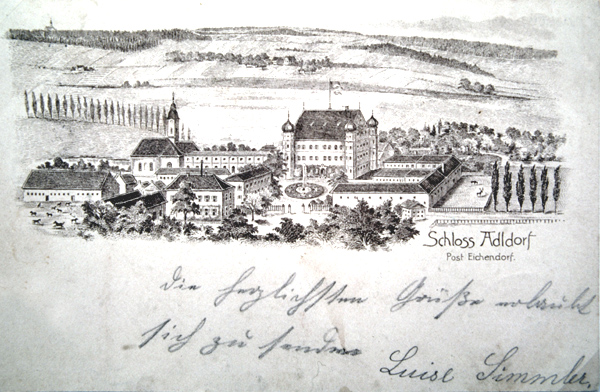 Schloss Adldorf
Post Eichendorf.
Die herzlichsten Grüße erlaubt
sich zu senden
Luise Simmler.